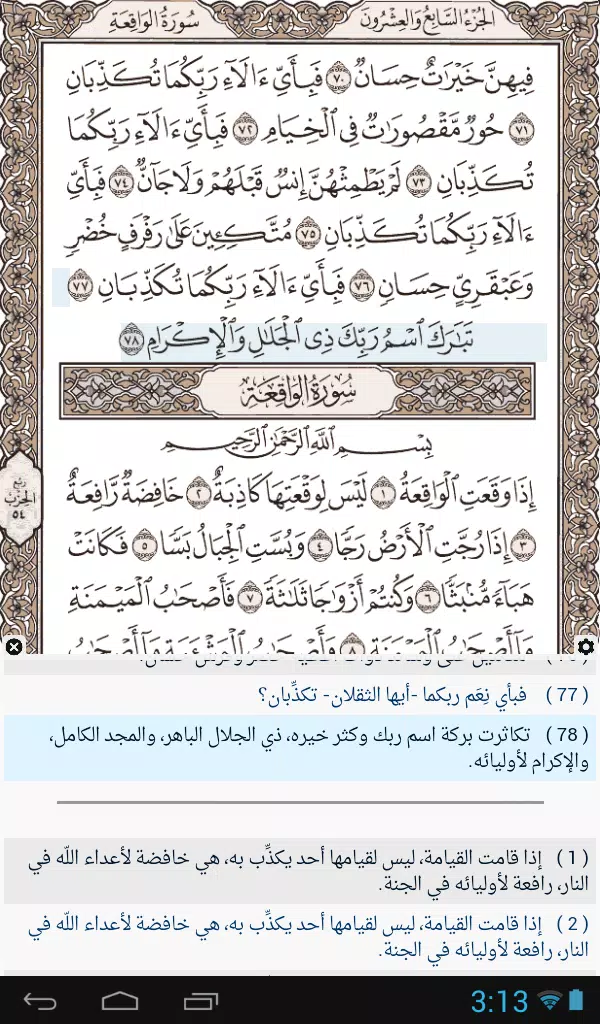 الجزء السابع والعشرون سورة الواقعة
فِيهِنَّ خَيْرَاتٌ حِسَانٌ ٧٠ فَبِأَيِّ ءَالَآءِ رَبِّكُمَا تُكَذِّبَانِ
٧١ حُورٌ مَّقْصُورَاتٌ فِي الْخِيَامِ ٧٢ فَبِأَيِّ ءَالَآءِ رَبِّكُمَا
تُكَذِّبَانِ ٧٣ لَمْ يَطْمِثْهُنَّ إِنسٌ قَبْلَهُمْ وَلَا جَآنٌّ ٧٤ فَبِأَيِّ
ءَالَآءِ رَبِّكُمَا تُكَذِّبَانِ ٧٥ مُتَّكِـِٔينَ عَلَىٰ رَفْرَفٍ خُضْرٍ
وَعَبْقَرِيٍّ حِسَانٍ ٧٦ فَبِأَيِّ ءَالَآءِ رَبِّكُمَا تُكَذِّبَانِ ٧٧
تَبَارَكَ اسْمُ رَبِّكَ ذِي الْجَلَالِ وَالْإِكْرَامِ ٧٨
سُورَةُ الْوَاقِعَةِ
بِسْمِ اللَّهِ الرَّحْمَٰنِ الرَّحِيمِ
إِذَا وَقَعَتِ الْوَاقِعَةُ ١ لَيْسَ لِوَقْعَتِهَا كَاذِبَةٌ ٢ خَافِضَةٌ رَّافِعَةٌ
٣ إِذَا رُجَّتِ الْأَرْضُ رَجًّا ٤ وَبُسَّتِ الْجِبَالُ بَسًّا ٥ فَكَانَتْ
هَبَآءً مُّنۢبَثًّا ٦ وَكُنتُمْ أَزْوَاجًا ثَلَاثَةً ٧ فَأَصْحَابُ الْمَيْمَنَةِ
مَآ أَصْحَابُ الْمَيْمَنَةِ ٨ وَأَصْحَابُ الْمَشْـَٔمَةِ مَآ أَصْحَابُ
ربع
الحزب
٥٤
(77) فبأي نِعَم ربكما -أيها الثقلان- تكذِّبان؟
(78) تكاثرت بركة اسم ربك وكثر خيره، ذي الجلال الباهر، والمجد الكامل،
والإكرام لأوليائه.
(1) إذا قامت القيامة، ليس لقيامها أحد يكذِّب به، هي خافضة لأعداء الله في
النار، رافعة لأوليائه في الجنة.
(2) إذا قامت القيامة، ليس لقيامها أحد يكذِّب به، هي خافضة لأعداء الله في
النار، رافعة لأوليائه في الجنة.
3:13